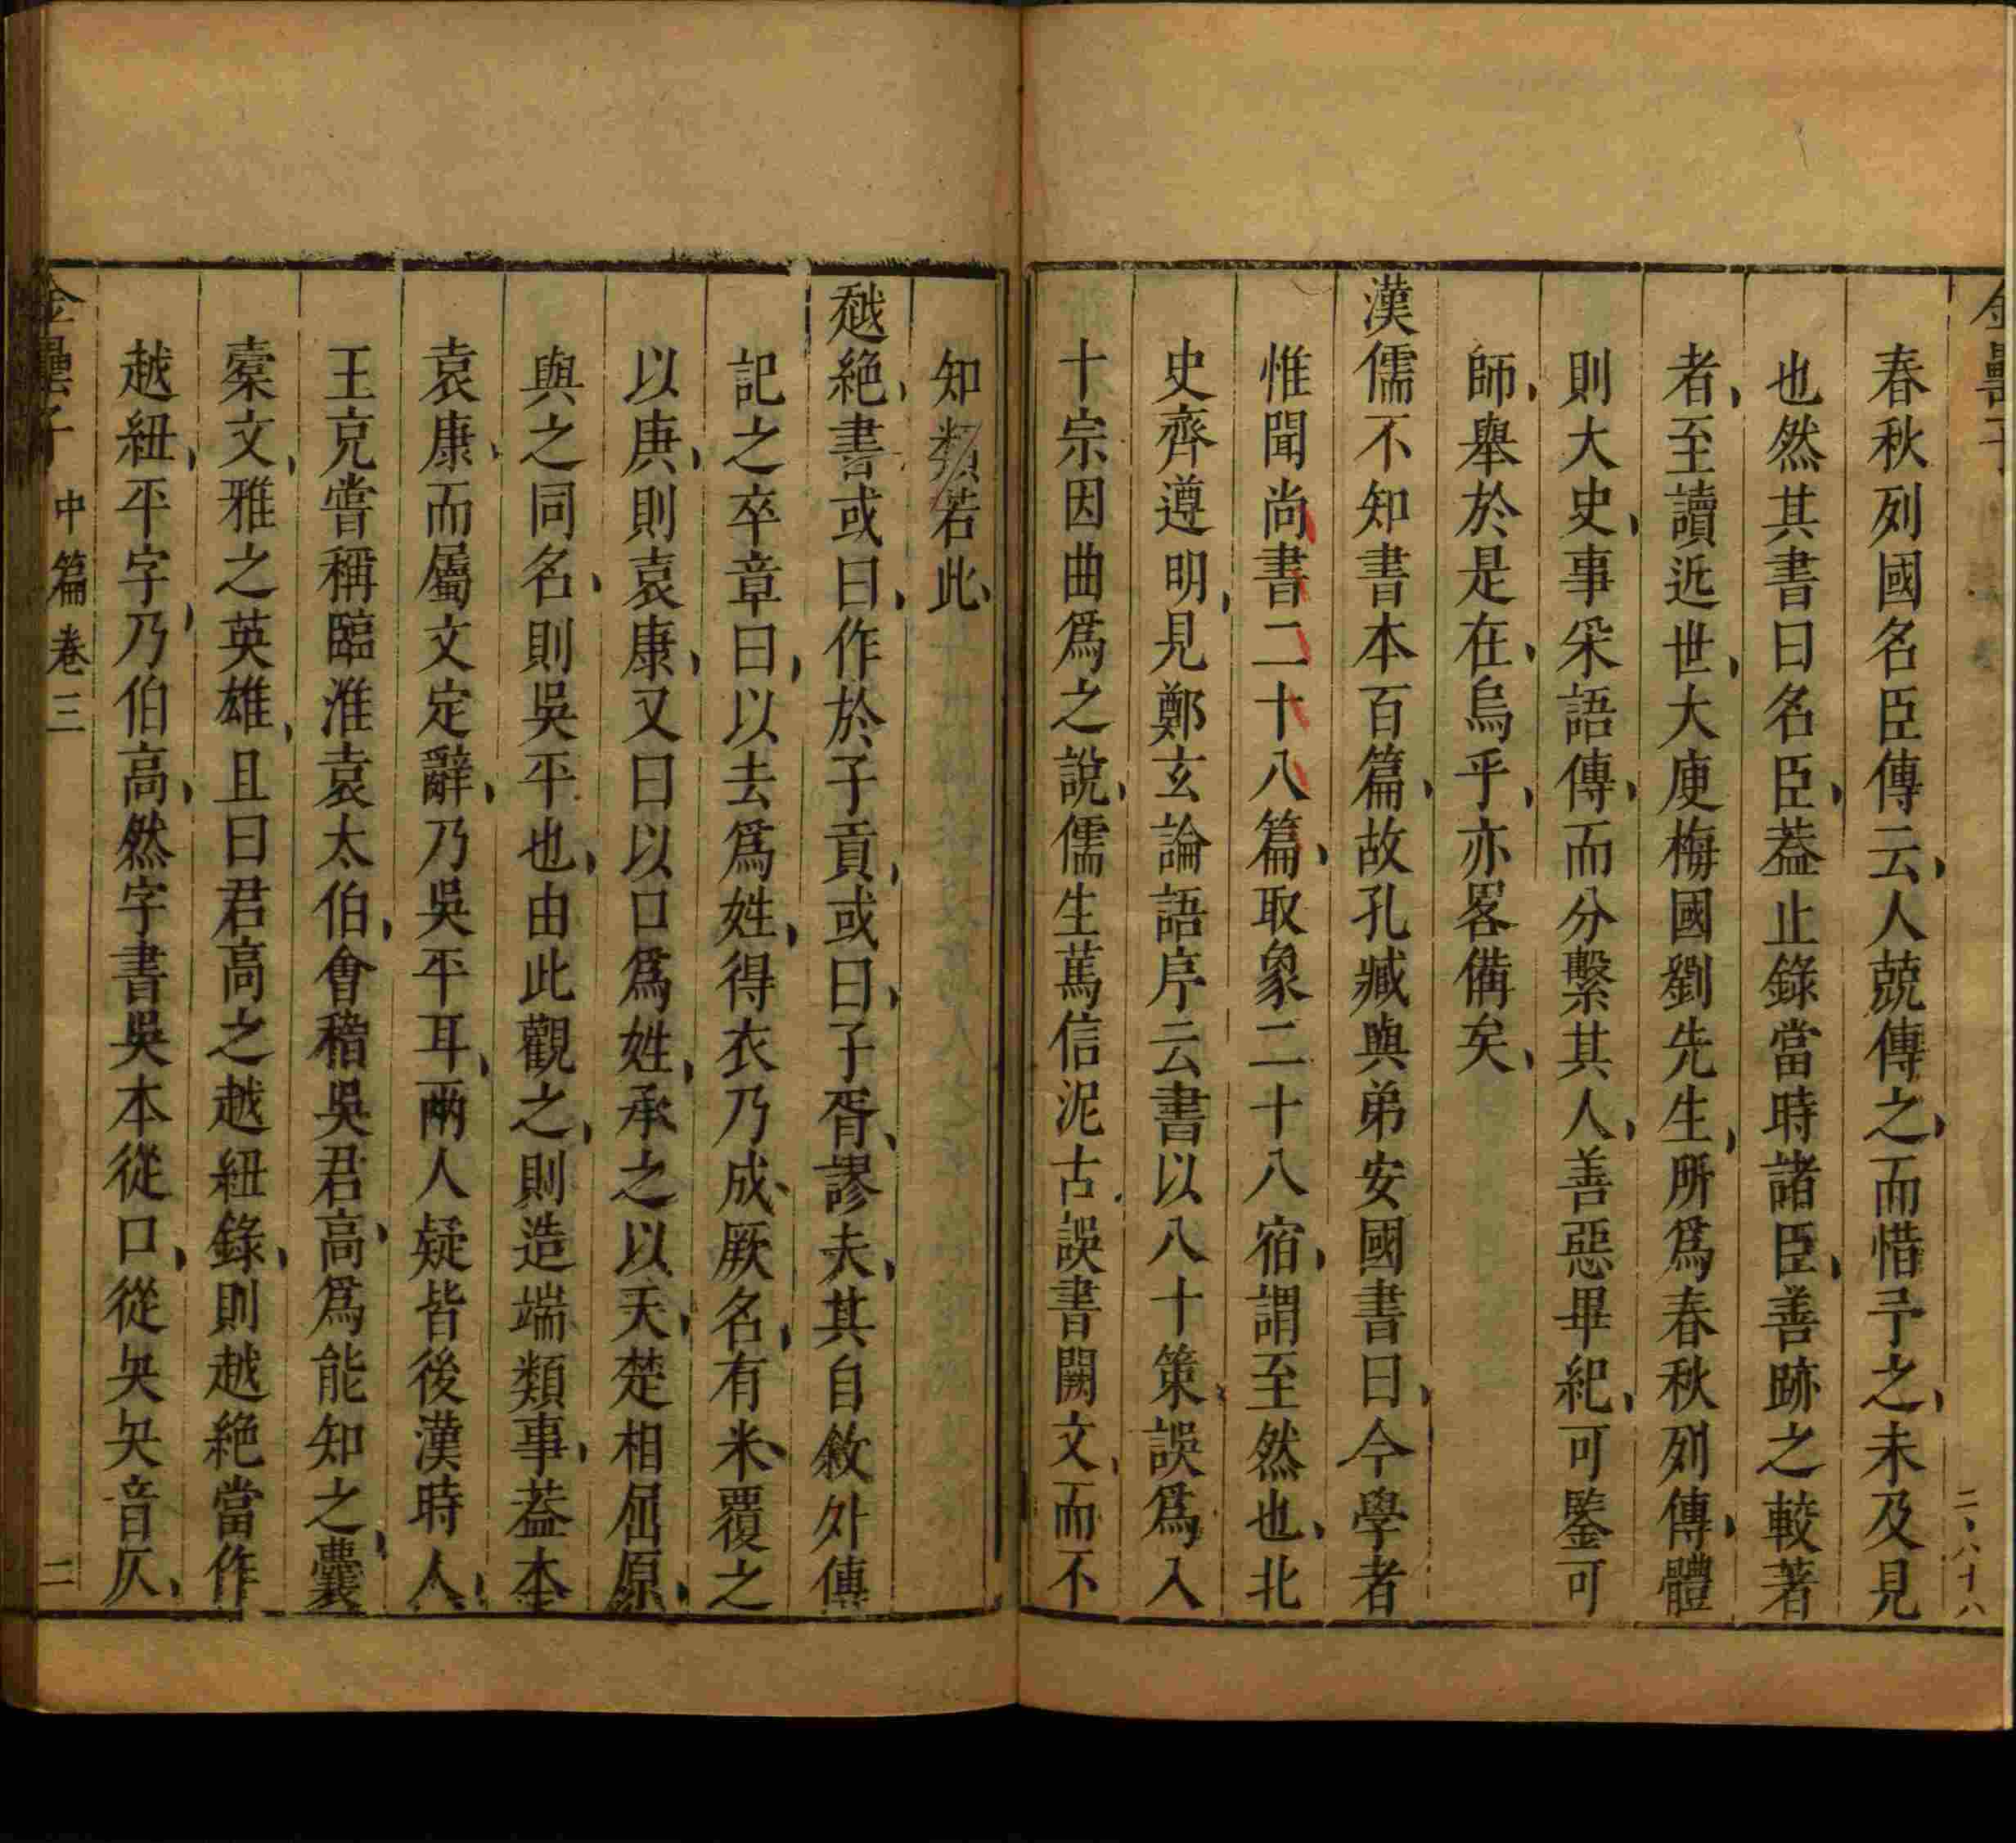 春秋列國名臣傳云人兢傳之而惜予之未及見
也然其書曰名臣葢止錄當時諸臣善跡之較著
者至讀近世大庾梅國劉先生所爲春秋列傳體
則大史事采語傳而分繫其人善惡畢紀可鑒可
師舉於是在烏乎亦畧備矣
漢儒不知書本百篇故孔臧與弟安國書曰今學者
惟聞尚書二十八篇取象二十八宿謂至然也北
史齊遵明見鄭玄論語序云書以八十策誤爲入
十宗因曲爲之說儒生篤信泥古誤書闕文而不
知類若此
越絶書或曰作於子貢或曰子胥謬夫其自敘外傳
記之卒章曰以去爲姓得衣乃成厥名有米覆之
以庚則袁康又曰以口爲姓承之以天楚相屈原
與之同名則吳平也由此觀之則造端類事葢本
袁康而屬文定辭乃吳平耳兩人疑皆後漢時人
王充嘗稱臨淮袁太伯會稽吳君高爲能知之囊
橐文雅之英雄且曰君高之越紐錄則越絶當作
越紐平字乃伯高然字書吳本從口從夨夨音仄
金罍子 中篇卷三 二